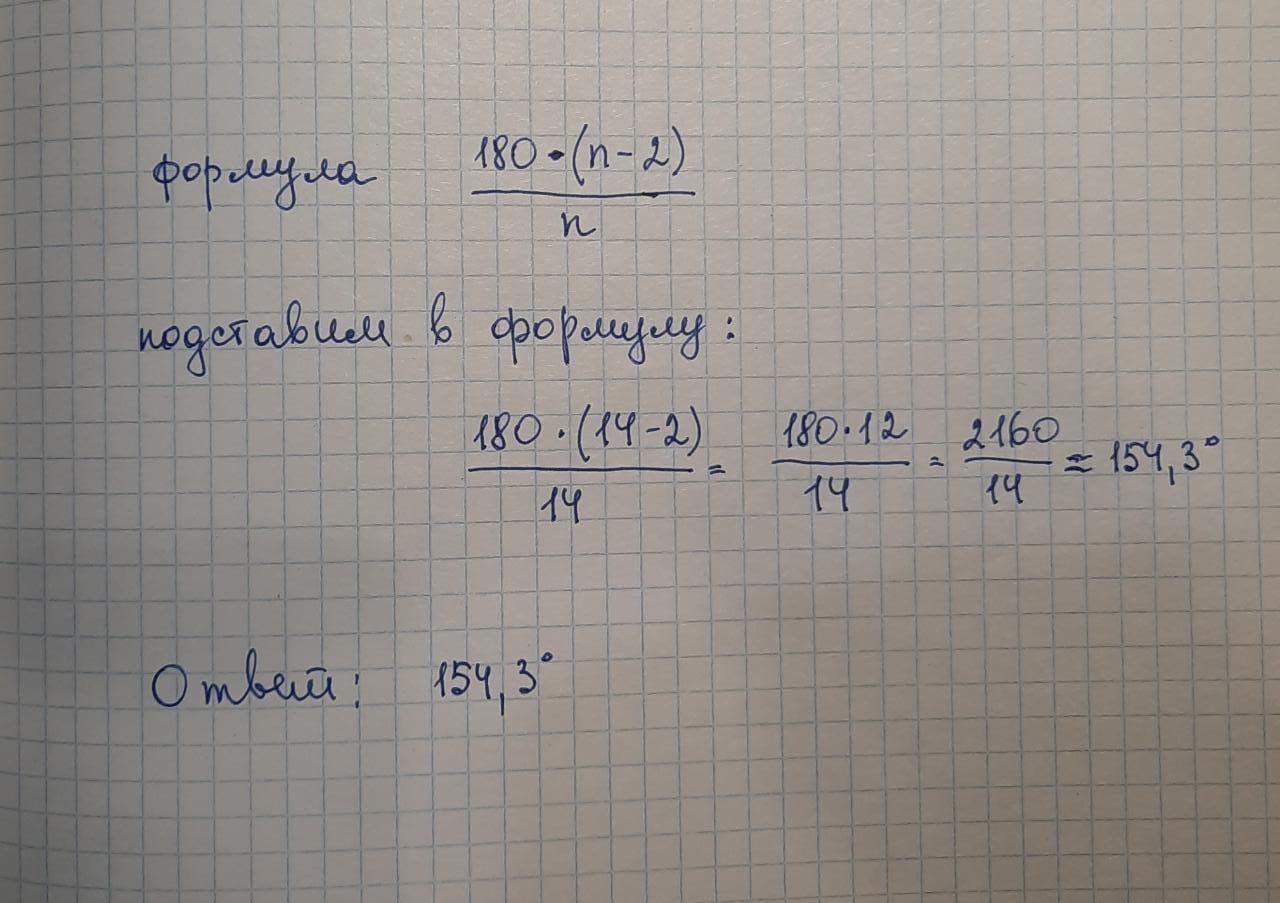 формула 180·(n-2)/n
подставим в формулу:
180·(14-2)/14 = 180·12/14 = 2160/14 ≈ 154,3°
Ответ: 154,3°